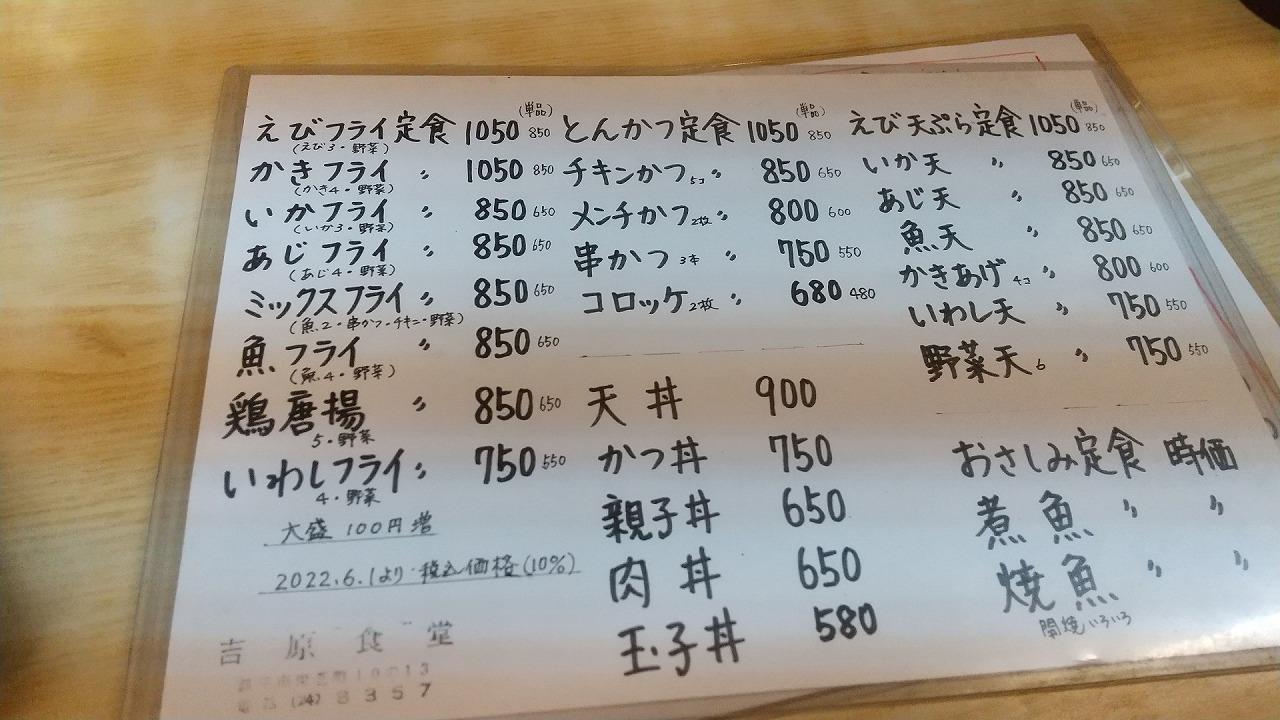 (単品)
えびフライ定食 1050 850
(えび3・野菜)
かきフライ 〃 1050 850
(かき4・野菜)
いかフライ 〃 850 650
(いか3・野菜)
あじフライ 〃 850 650
(あじ4・野菜)
ミックスフライ 〃 850 650
(魚2・串かつ・チキン・野菜)
魚フライ 〃 850 650
(魚4・野菜)
鶏唐揚 〃 850 650
5・野菜
いわしフライ 〃 750 550
4・野菜
大盛 100円増
2022.6.1より 税込価格(10%)
吉原食堂
(24) 8357
(単品)
とんかつ定食 1050 850
チキンかつ 5コ 〃 850 650
メンチかつ 2枚 〃 800 600
串かつ 3本 〃 750 550
コロッケ 2枚 〃 680 480
天丼 900
かつ丼 750
親子丼 650
肉丼 650
玉子丼 580
(単品)
えび天ぷら定食 1050 850
いか天 〃 850 650
あじ天 〃 850 650
魚天 〃 850 650
かきあげ 4コ 〃 800 600
いわし天 〃 750 550
野菜天 6 〃 750 550
おさしみ定食 時価
煮魚 〃 〃
焼魚 〃 〃
開焼いろいろ